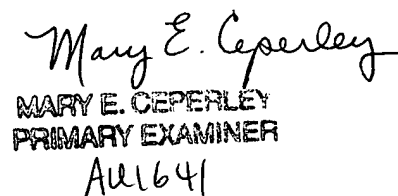 Mary E. Ceperley
MARY E. CEPERLEY
PRIMARY EXAMINER
AU1641